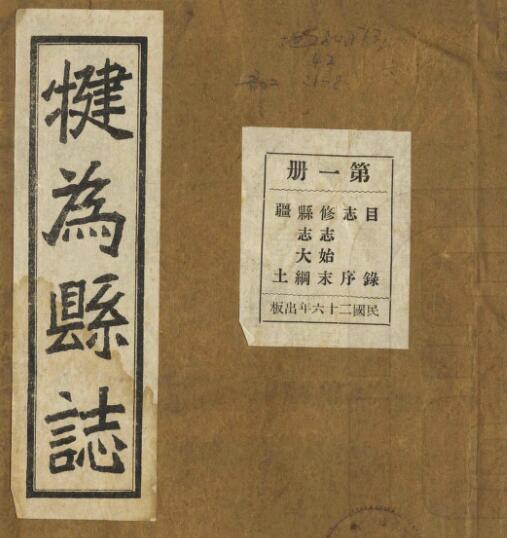 犍為縣誌
第一册
目錄
志序
修志始末
縣志大綱
疆土
民國二十六年出板